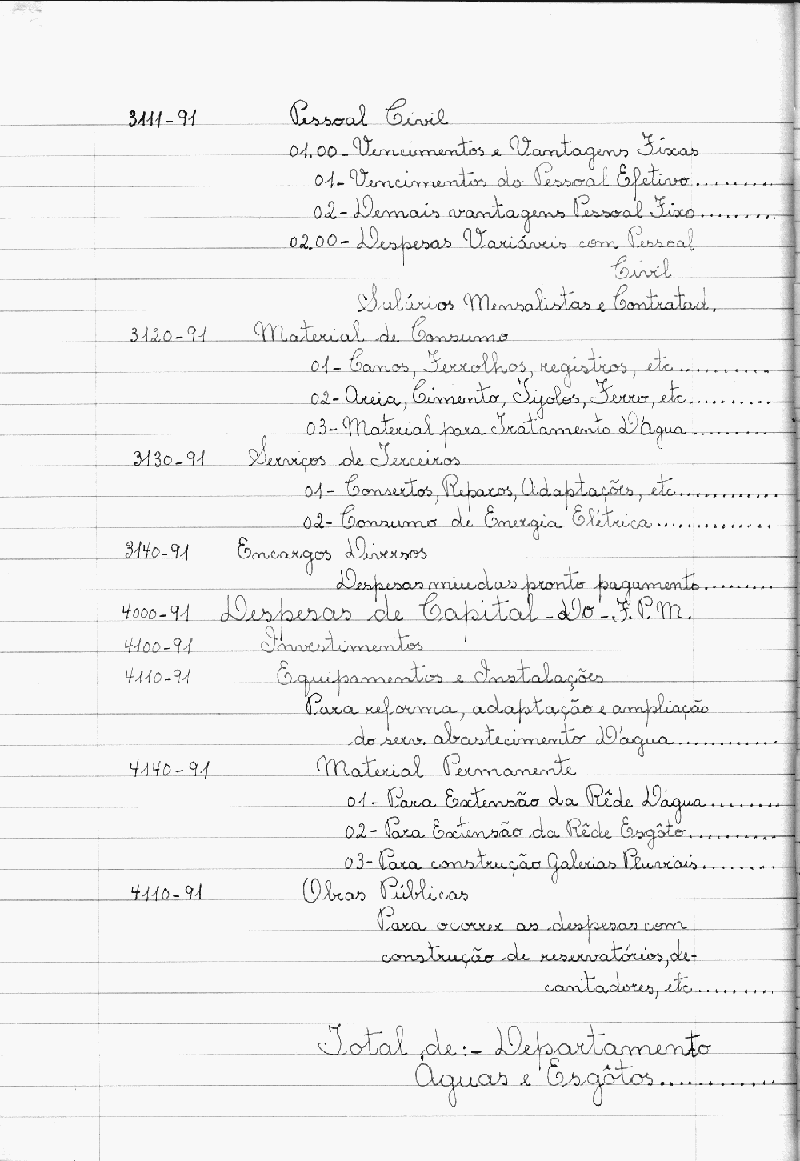 3111-91 Pessoal Civil
01.00-Vencimentos e Vantagens Fixas
01-Vencimentos do Pessoal Efetivo..........
02-Demais vantagens Pessoal Fixo........
02.00-Despesas Variáveis com Pessoal
Civil
Salários Mensalistas e Contratad.
3120-91 Material de Consumo
01-Canos, Ferrolhos, registros, etc..........
02-Areia, Cimento, Tijolos, Ferro, etc..........
03-Material para Tratamento D'água........
3130-91 Serviços de Terceiros
01-Consertos, Reparos, Adaptações, etc............
02-Consumo de Energia Elétrica.............
3140-91 Encargos Diversos
Despesas miudas pronto pagamento........
4000-91 Despesas de Capital-Do-F.P.M.
4100-91 Investimentos
4110-91 Equipamentos e Instalações
Para reforma, adaptação e ampliação
do serv. abastecimento D'água...........
4140-91 Material Permanente
01-Para Extensão da Rêde D'água.......
02-Para Extensão da Rêde Esgôto.........
03-Para construção Galerias Pluviais........
4110-91 Obras Públicas
Para ocorrer as despesas com
construção de reservatórios, de-
cantadores, etc.........
Total de:-Departamento
Águas e Esgôtos............